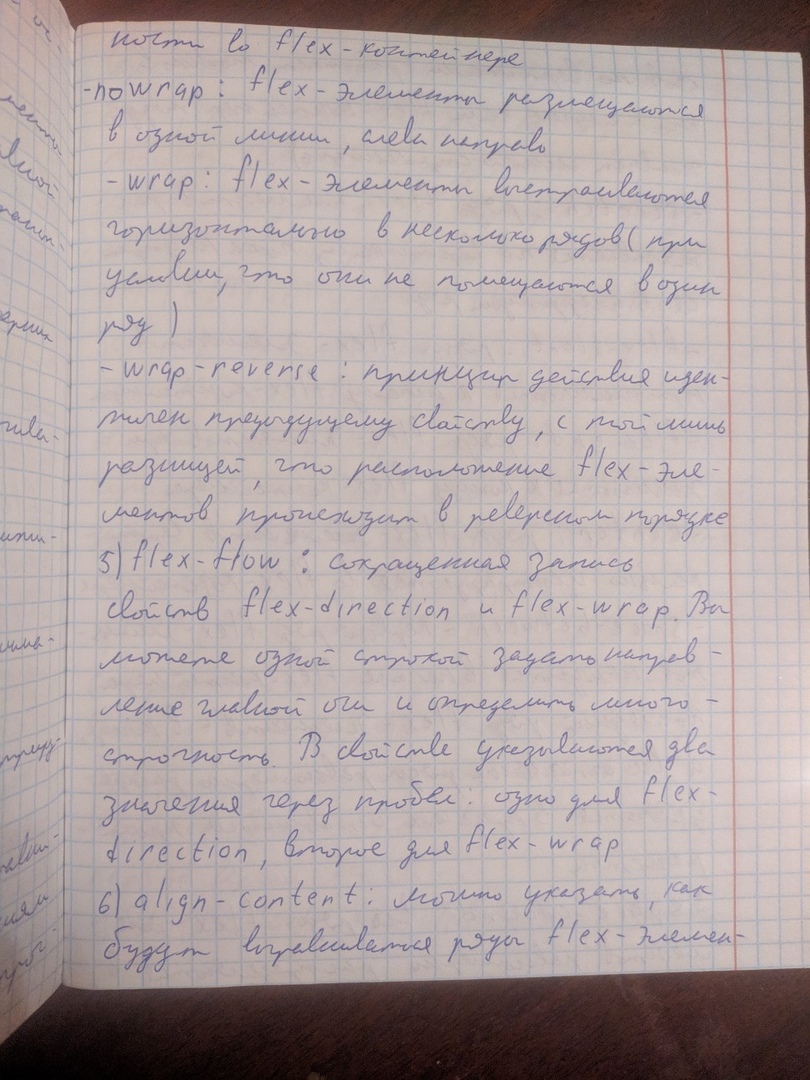 ности во flex-контейнере
-nowrap: flex-элементы размещаются
в одной линии, слева направо
-wrap: flex-элементы выстраиваются
горизонтально в несколько рядов (при
условии, что они не помещаются в один
ряд)
-wrap-reverse: принцип действия иден-
тичен предыдущему свойству, с той лишь
разницей, что расположение flex-эле-
ментов происходит в реверсном порядке
5) flex-flow: сокращенная запись
свойств flex-direction и flex-wrap. Вы
можете одной строкой задать направ-
ление главной оси и определить много-
строчность. В свойстве указываются два
значения через пробел: одно для flex-
direction, второе для flex-wrap
6) align-content: можно указать, как
будут выравниваться ряды flex-элемен-